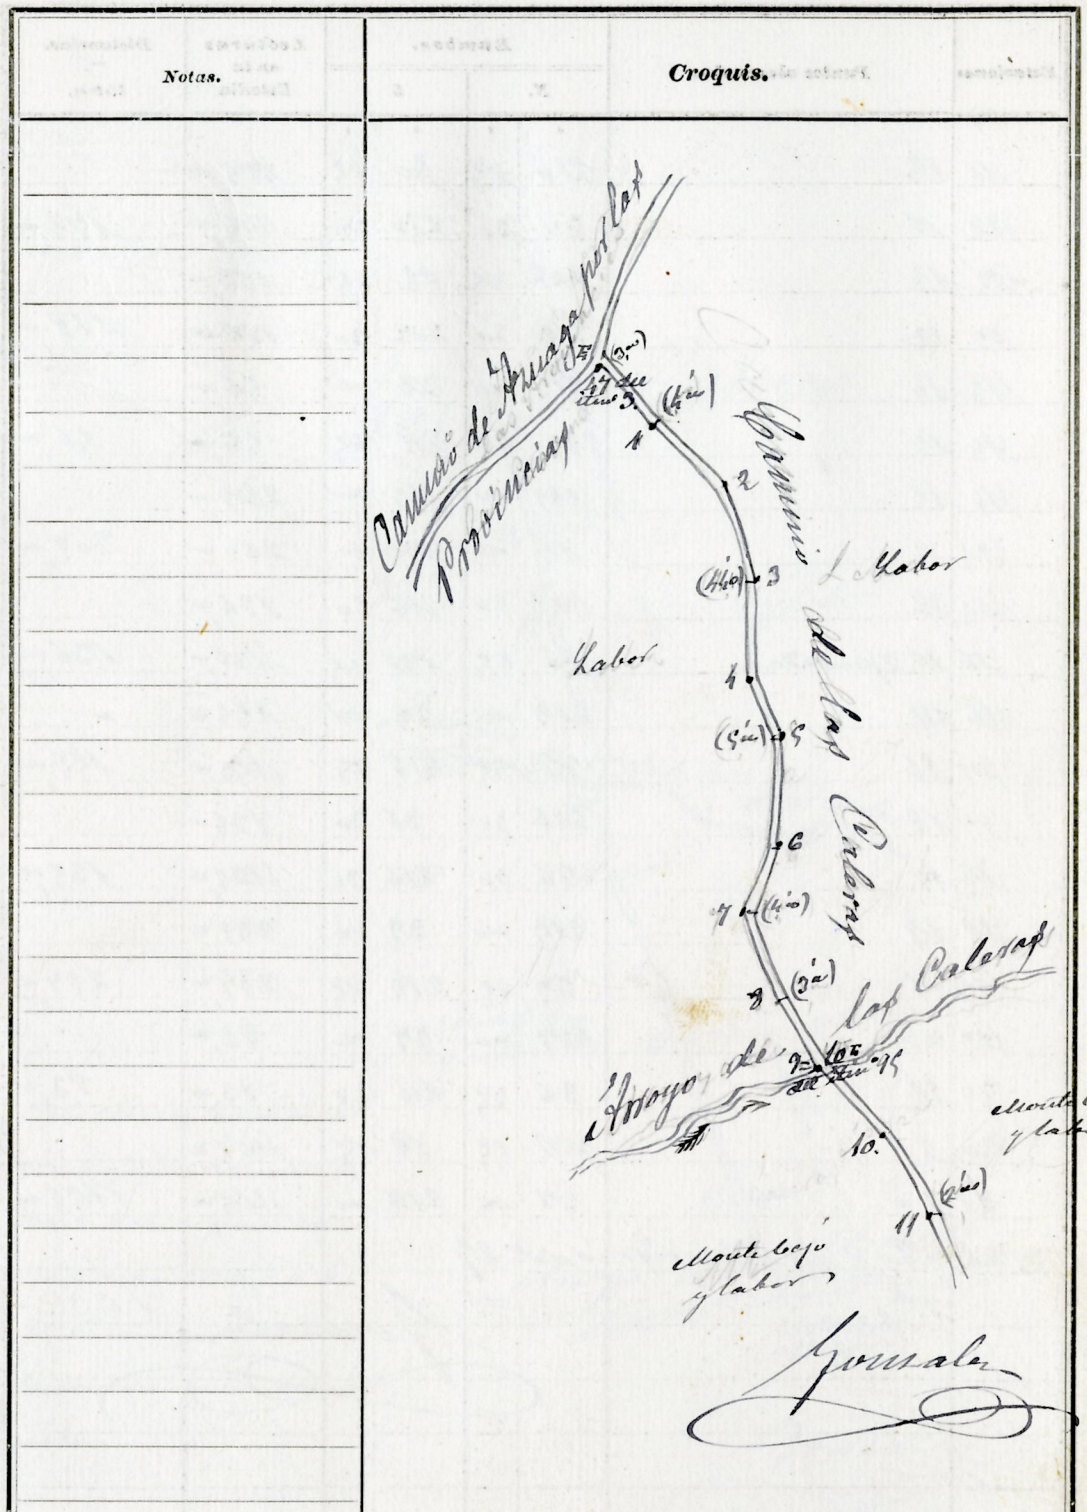 Notas.
Croquis.
Camino de Azuaga por las
Provincias
E
(3,m)
47 del
itino 3.
1
2
Camino de las Caleras
3
Labor
Labor
4
5
6
7
8
Arroyo de las Caleras
9 = 10 E
del itino 95
10.
11
Monte
y labo
Monte bajo
y labor
Gonzalez